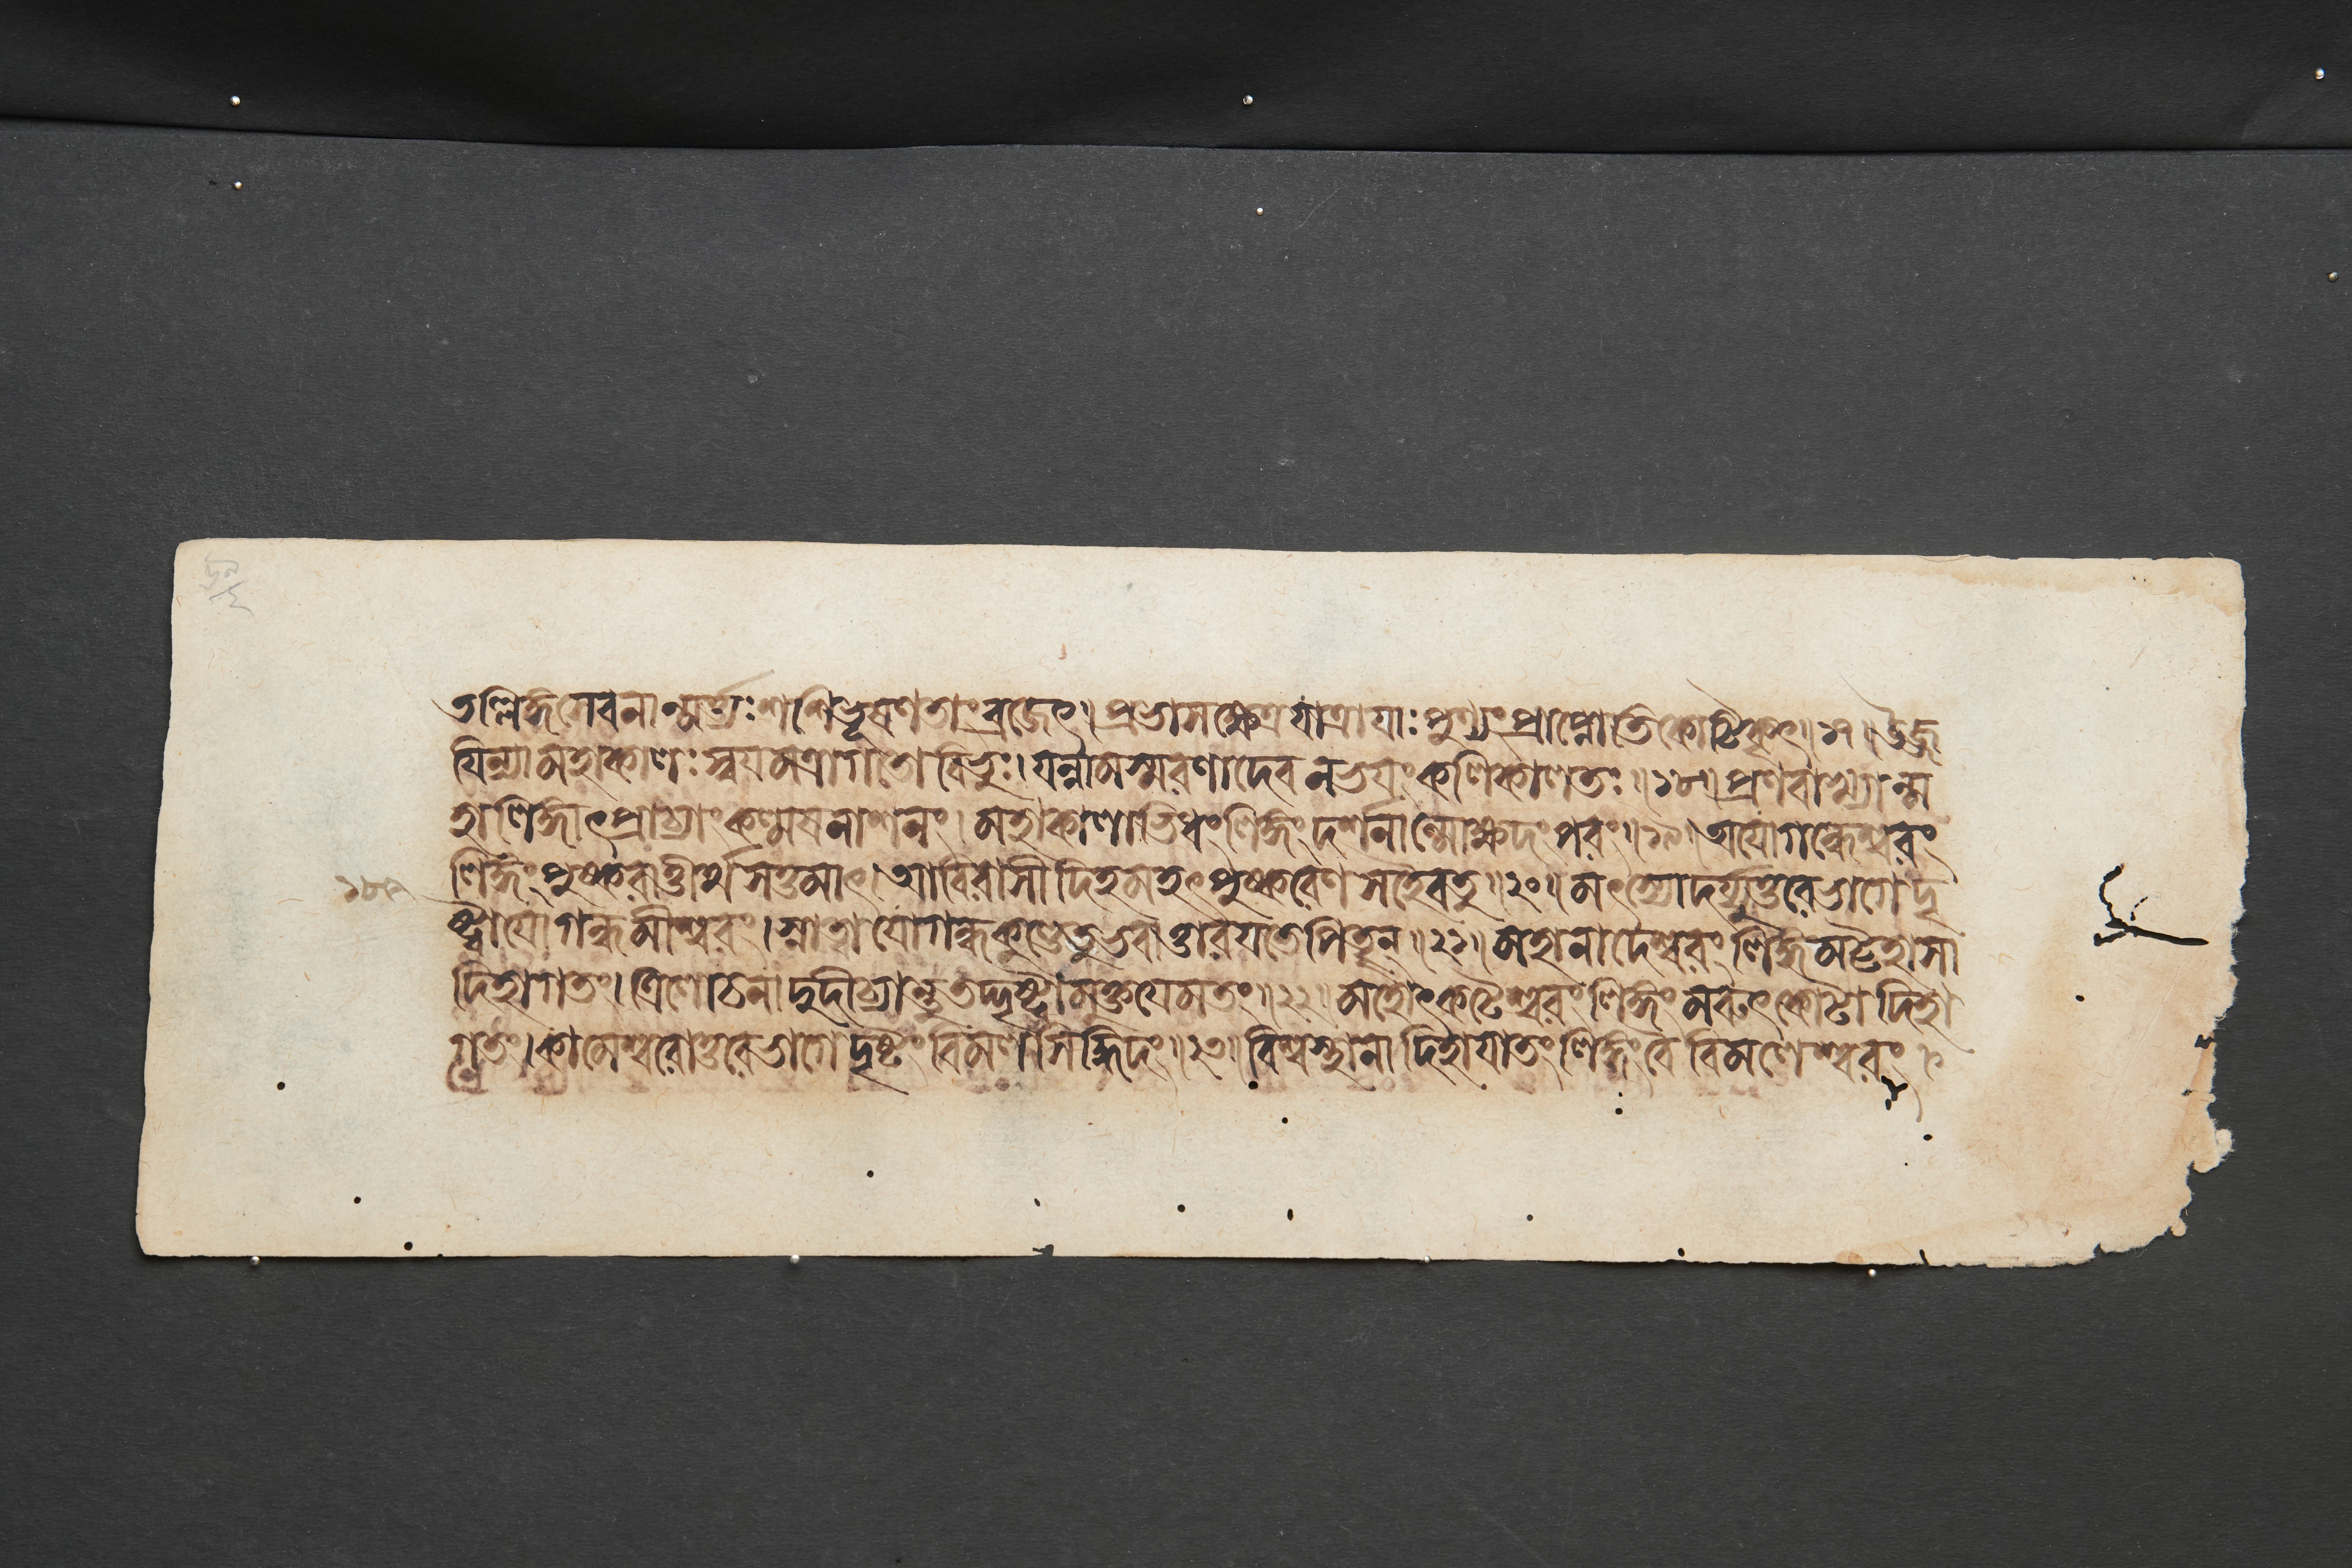 তল্লিঙ্গসেবনান্মর্ত্যঃশশিভূষণতাংব্রজেৎ। প্রভাসক্ষেত্রযাত্রাযাঃপুণ্যংপ্রাপ্নোতিকোটিকৃৎ॥১৭॥উজ্জ
যিন্যামহাকালঃস্বযমত্রাগতোবিভুঃ।যন্নামস্মরণাদেবনভযংকলিকালতঃ॥১৮॥প্রণবাখ্যান্ম
হালিঙ্গাৎপ্রাচ্যাংকল্মষনাশনং।মহাকালাভিধংলিঙ্গংদর্শনান্মোক্ষদংপরং॥১৯॥অযোগন্ধেশ্বরং
লিঙ্গংপুষ্করাত্তীর্থসত্তমাৎ।আবিরাসীদিহমহৎপুষ্করেণসহৈবতু॥২০॥মৎস্যোদর্য্যুত্তরেভাগেদৃ
ষ্ট্বাযোগন্ধমীশ্বরং।স্নাত্বাযোগন্ধকুণ্ডেতুভবাত্তারযতেপিতৄন্॥২১॥মহানাদেশ্বরংলিঙ্গমট্টহাসা
দিহাগতং।ত্রিলোচনাদুদীচ্যান্তুতদ্দৃষ্ট্বামুক্তযেমতং॥২২॥মহোৎকটেশ্বরংলিঙ্গংমরুৎকোটাদিহা
গতং।কামেশ্বরোত্তরেভাগেদৃষ্টংবিমলসিদ্ধিদং॥২৩॥বিশ্বস্থানাদিহাযাতংলিঙ্গংবৈবিমলেশ্বরং।
১৮৯